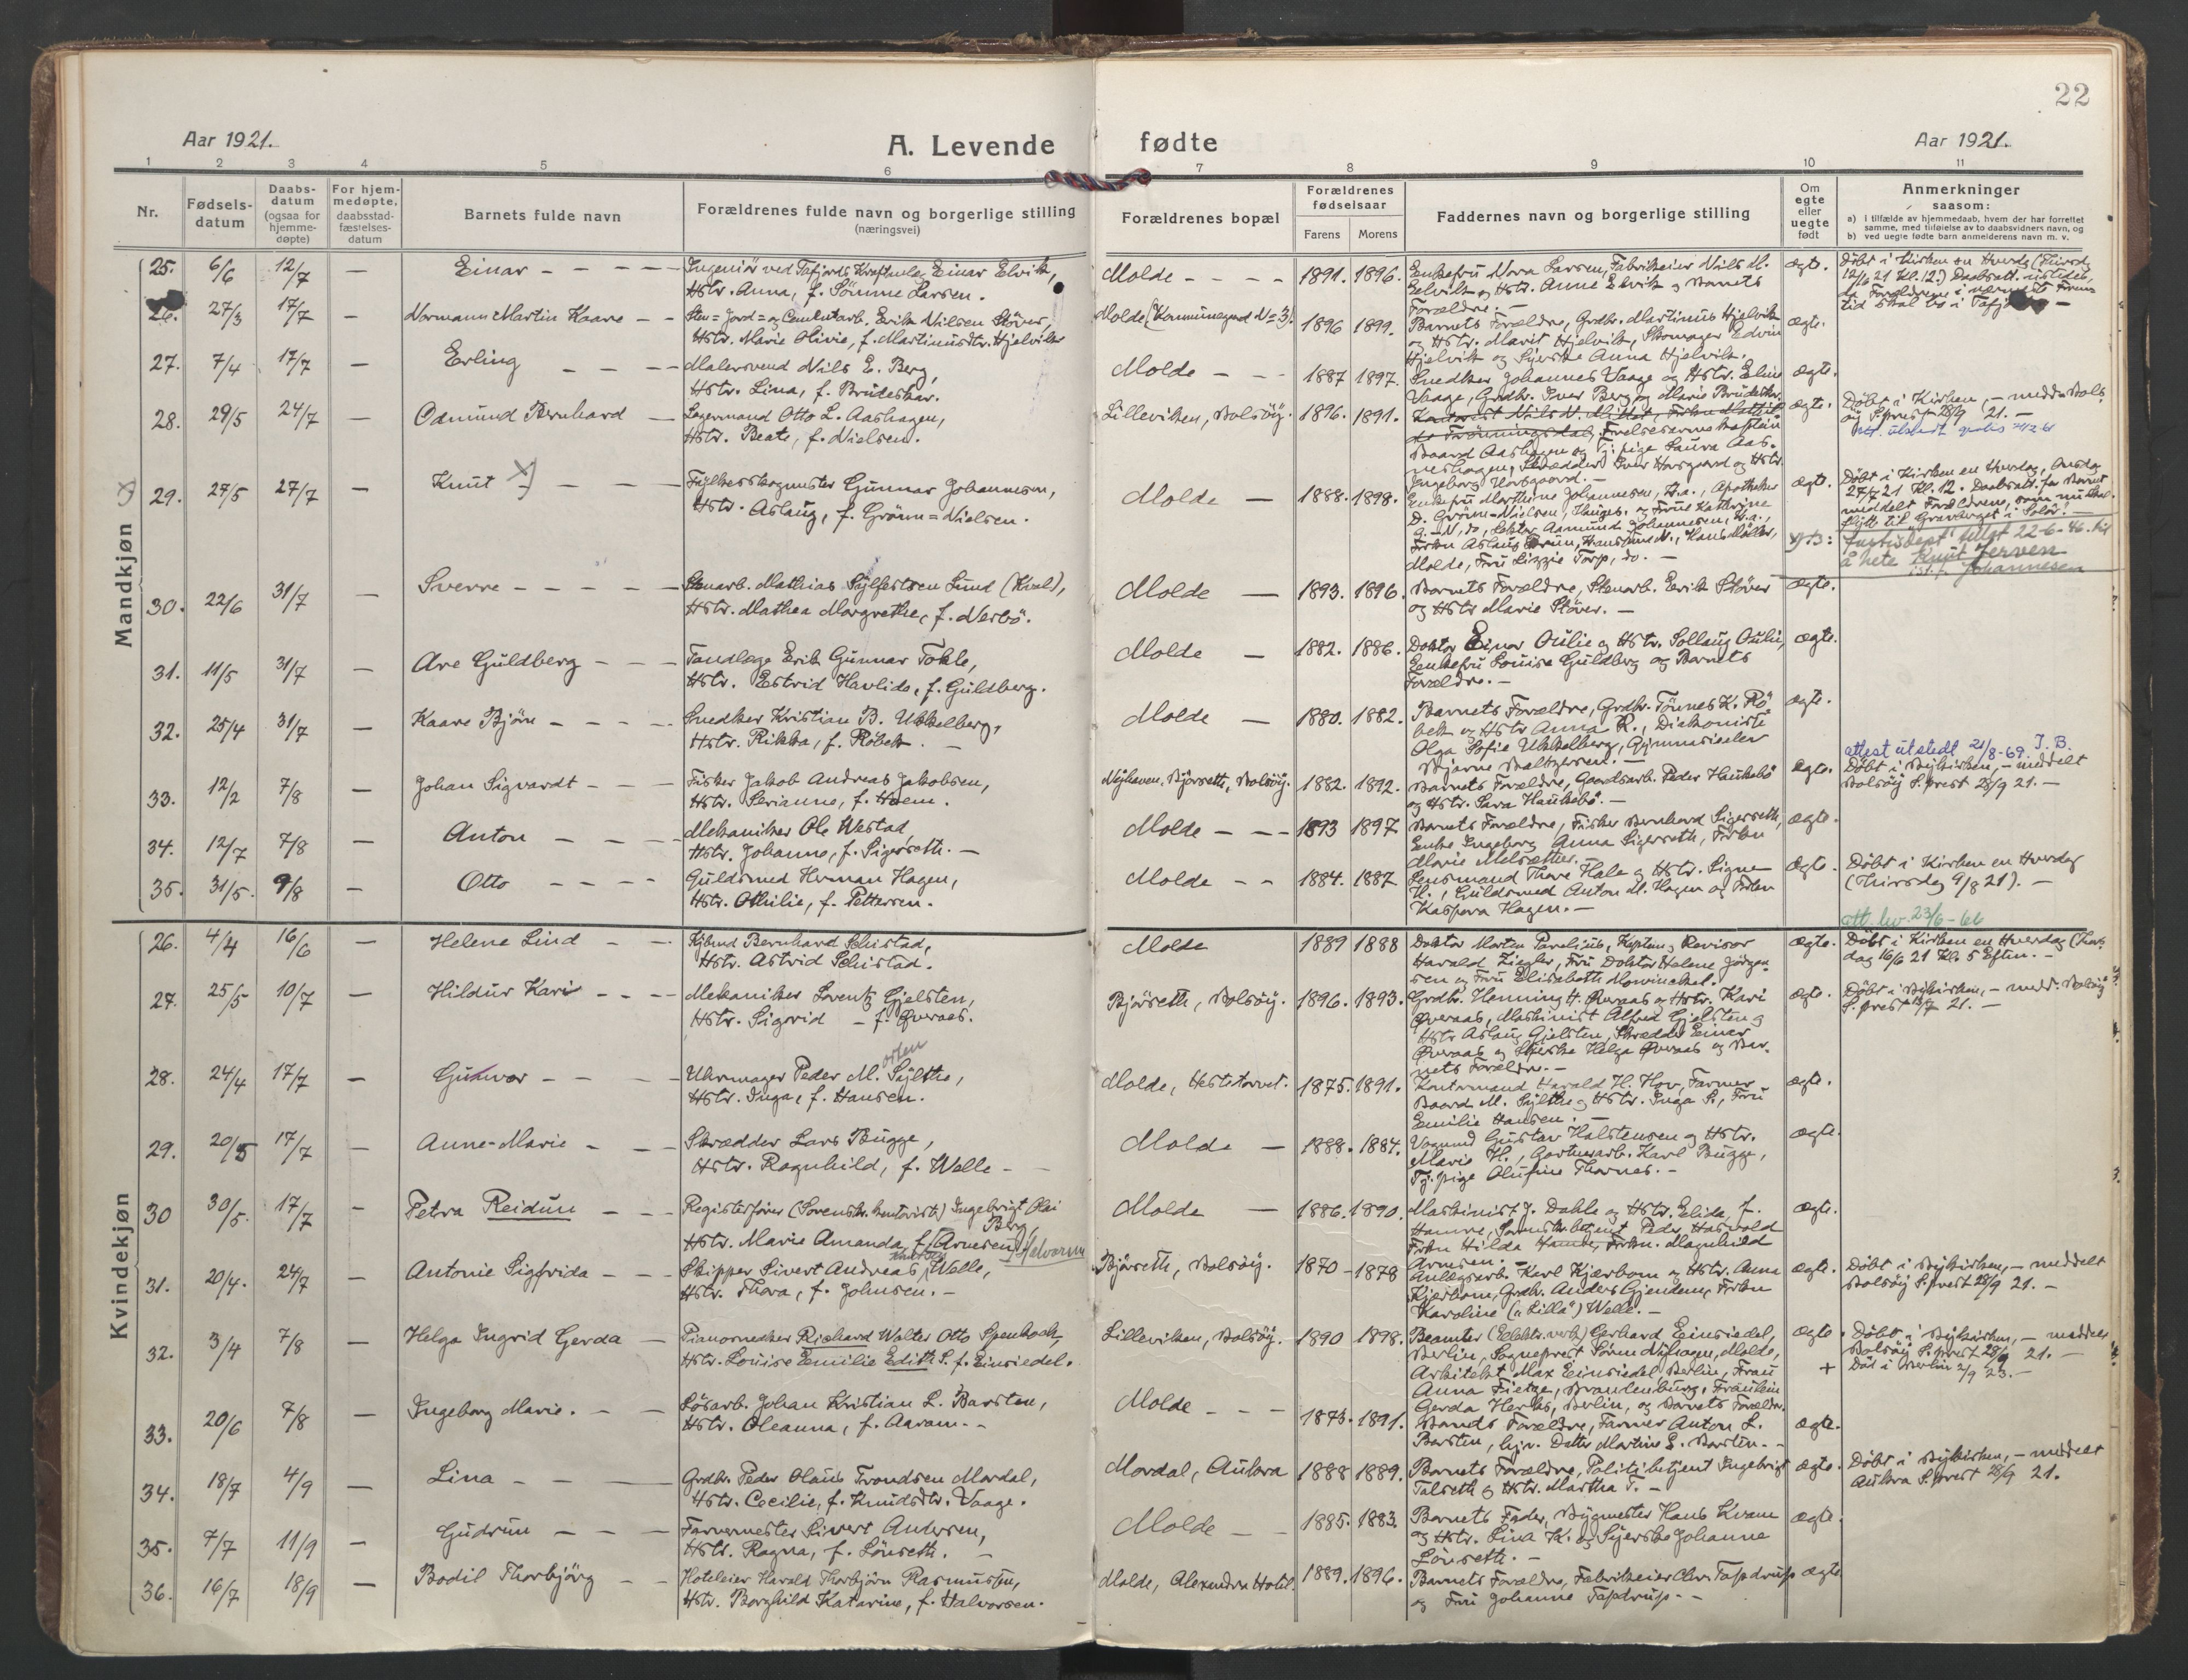 22
Aar 1921.
A. Levende fødte
Aar 1921.
1 2 3 4 5 6 7 8 9 10 11
Nr.
Fødsels-
datum
Daabs-
datum
(ogsaa for
hjemme-
døpte)
For hjem-
medøpte,
daabsstad-
fæstelses-
datum
Barnets fulde navn
Forældrenes fulde navn og borgerlige stilling
(næringsvei)
Forældrenes bopæl
Forældrenes
fødselsaar
Farens Morens
Faddernes navn og borgerlige stilling
Om
egte
eller
uegte
født
Anmerkninger
saasom:
a) I tilfælde av hjemmedaab, hvem der har forrettet
samme, med tilføielse av to daabsvidners navn, og
b) ved uegte fødte barn anmelderens navn m. v.
Mandkjøn
25. 6/6 12/7 — Einar
Ingeniør ved Tafjords Kraftanlæg Einar Elvik,
Hstr. Anna, f. Sömme Larsen.
Molde 1891. 1896.
Enkefru Nora Larsen, Fabrikeier Nils M.
Eelvik og Hstr. Anne Elvik og Barnets
Forældre. —
ægt.
Döbt i Kirken en Hverdag
12/6 21 Kl. 12.
26. 27/3 17/7 — Normann Martin Kaare
Sten= Jord= og Cementarb. Erik Nilsen Stöver,
Hstr. Marie Olivie, f. Martinusdtr. Hjelvik
Molde (Kommunegaard No 3). 1896 1899.
Barnets Forældre, Grdbr. Martinus Hjelvik
og Hstr. Marit Hjelvik, Skomager Edvin
Hjelvik og Syerske Anna Hjelvik.
ægte.
27. 7/4 17/7 — Erling
Malersvend Nils E. Berg,
Hstr. Lina, f. Brudeskar.
Molde 1887 1897.
Snedker Johannes Vaage og Hstr. Eline
Vaage, Grdbr. Iver Berg og Marie Brudeskar.
ægte.
28. 29/5 24/7 — Odmund Bernhard
Lagermand Otto L. Aashagen,
Hstr. Beate, f. Nielsen.
Lilleviken, Bolsöy. 1896. 1891.
Baard Aashagen og Tj.pige Laura Aas-
neshagen, Skrædder Iver Horsgaard og Hstr.
Ingeborg Horsgaard. —
ægte.
Döbt i Kirken, — medd. Bols-
öy S.prest 28/9 21. —
29. 27/5 27/7 — Knut x)
Fylkesskogmester Gunnar Johannesen,
Hstr. Aslaug, f. Grönn=Nielsen.
Molde — 1888. 1898.
Enkefru Marthine Johannesen, H.a., Apotheker
D. Grönn=Nielsen, Haiges. og Frue Kathrine
G.-N., do, Lektor Aamund Johannesen, H.a.,
Molde, Fru Lizzie Torp, do. —
ægt.
Döbt i Kirken en Hverdag, Onsdag
27/7 21 Kl. 12. Daabsatt. for Barnet
meddelt Forældrene, som nu skal
flytt til Gravberget i Solör! —
å hete Knut Jerven
Johannesen
30. 22/6 31/7 — Sverre
Stenarb. Mathias Sylfestsen Lund (Kval),
Hstr. Mathea Margrethe, f. Nesbö.
Molde — 1893. 1896.
Barnets Forældre, Stenarb. Erik Stöver
og Hstr. Marie Stöver. —
ægte.
31. 11/5 31/7 — Are Guldberg
Tandlæge Erik Gunnar Tokle,
Hstr. Estrid Havlide, f. Guldberg.
Molde — 1882. 1886.
Doktor Einar Oulie og Hstr. Sollaug Oulie,
Enkefru Louise Guldberg og Barnets
Forældre. —
ægte.
32. 25/4 31/7 — Kaare Bjørn
Snedker Kristian B. Ukkelberg,
Hstr. Rikka, f. Röbek. —
Molde — 1880. 1882.
Barnets Forældre, Grdbr. Tönnes K. Rö-
bek og Hstr. Anna R., Diakonisse
Olga Sofie Ukkelberg, Gymnasieelev
Bjarne Baltzersen. —
ægte.
33. 12/2 7/8 — Johan Sigvardt
Fisker Jakob Andreas Jakobsen,
Hstr. Serianne, f. Hoem.
Nyhaven, Bjørseth, Bolsöy. 1882. 1892.
Barnets Forældre, Gaardsarb. Peder Haukebö
og Hstr. Sara Haukebö. —
ægte.
attest utstedt 21/8-69. J. B.
Döbt i Bykirken, — meddelt
Bolsöy S.prest 28/9 21. —
34. 12/7 7/8 — Anton
Mekaniker Ole Westad,
Hstr. Johanne, f. Sigerseth. —
Molde 1893 1897
Barnets Forældre, Fisker Bernhard Sigerseth,
Enke Ingeborg Anna Sigerseth, Frkn
Marie Melsæther.
ægte.
35. 31/5. 9/8 — Otto
Guldsmed Herman Hagen,
Hstr. Othilie, f. Pettersen.
Molde 1884. 1887
Lensmand Thore Hale og Hstr. Signe
H., Guldsmed Anton M. Hagen og Frkn
Kaspara Hagen. —
ægte.
Döbt i Kirken en Hverdag
(Tirsdag 9/8 21). —
att. lev. 23/6-66
Kvindekjøn
26. 4/4 16/6 — Helene Lind
Kjbmd Bernhard Schistad,
Hstr. Astrid Schistad.
Molde 1889 1888
Doktor Morten Parelius, Kaptein og Revisor
Harald Ziegler, Fru Doktor Helene Jörgen-
sen og Fru Elisabeth Mowinckel.
ægte.
Döbt i Kirken en Hverdag (Tors-
dag 16/6 21 Kl. 5 Eftm. —
27. 25/5 10/7 — Hildur Kari
Mekaniker Lorentz Gjelsten,
Hstr. Sigrid — f. Øveraas.
Bjørseth, Bolsöy. 1896. 1893.
Grdbr. Henning H. Øveraas og Hstr. Kari
Øveraas, Maskinist Alfred Gjelsten og
Hstr. Aslaug Gjelsten, Skrædder Einar
Øveraas og Syerske Helga Øveraas og Bar-
nets Forældre. —
ægte.
Döbt i Bykirken, — medd. Bolsöy
S.prest 21. —
28. 24/4 17/7 — Gunvor
orten
Uhrmager Peder M. Sylthe,
Hstr. Inga, f. Hansen.
Molde, Hestetorvet. 1875. 1891.
Kontormand Harald H. Hov, Farmer
Baard M. Sylthe og Hstr. Inga S., Fru
Emilie Hansen. —
ægte.
29. 20/5 17/7 — Anne-Marie
Skrædder Lars Bugge,
Hstr. Ragnhild, f. Welle
Molde — 1888. 1884.
Vognmd Gustav Halstensen og Hstr.
Marie H., Gartnerarb. Karl Bugge,
Tj.pige Olufine Thornes. —
ægte.
30 30/5. 17/7 — Petra Reidun
Registerfører (Sorenskr. kontorist) Ingebrigt Olai
Berg,
Hstr. Marie Amanda, f. Arnesen Halvorsen
Molde — 1886. 1890.
Maskinist J. Dahle og Hstr. Elida, f.
Hamre, Sorenskr.betjent Peder Hasvold
Frkn Hilda Hamre, Frkn. Magnhild
Arnesen. —
ægte.
31. 20/4. 24/7 — Antonie Sigfrida
Skipper Sivert Andreas Welle,
Hstr. Thora, f. Johnsen. —
Bjørseth, Bolsöy. 1870 1878
Anlægsarb. Karl Kjærbom og Hstr. Anna
Kjærbom, Grdbr. Anders Gjendem, Frkn
Karoline („Lilla") Welle. —
ægte.
Döbt i Bykirken, — meddelt
Bolsöy S.prest 28/9 21. —
32. 3/4 7/8 — Helga Ingrid Gerda
Pianosnedker Richard Walter Otto Spenkoch,
Hstr. Louise Emilie Edith S. f. Einsiedel.
Lilleviken, Bolsöy. 1890 1898.
Beamter (Elektr.verk) Gerhard Einsiedel,
Berlin, Sogneprest Sören Nyhagen, Molde,
Arkitekt Max Einsiedel, Berlin, Frau
Anna Fietze, Brandenburg, Fräulein
Gerda Herks, Berlin, og Barnets Forældre.
ægte.
+
Döbt i Bykirken, — meddelt
Bolsöy S.prest 28/9 21. —
Död i Berlin 2/9 23. —
33. 20/6 7/8 — Ingeborg Marie.
Løsarb. Johan Kristian L. Barsten,
Hstr. Oleanna, f. Aaram.
Molde 1873. 1891.
Barnets Forældre, Farmer Anton L.
Barsten, hjv. Datter Martine L. Barsten.
ægte.
34. 18/7 4/9 — Lina
Grdbr. Peder Olaus Trondsen Mordal,
Hstr. Cecilie, f. Knudsdtr. Vaage.
Mordal, Aukra 1888 1889.
Barnets Forældre, Politibetjent Ingebrigt
Talseth og Hstr. Martha T. —
ægte.
Döbt i Bykirken, — meddelt
Aukra S.prest 28/9 21.
35. 7/7 11/9 — Gudrun
Farvermester Sivert Andersen,
Hstr. Ragna, f. Lönseth. —
Molde 1885. 1883.
Barnets Fader, Bygmester Hans Kvam
og Hstr. Lina K. og Syerske Johanne
Lönseth. —
ægte.
36. 16/7 18/9 — Bodil Thorbjörg
Hoteleier Harald Thorbjörn Rasmussen,
Hstr. Borghild Katarine, f. Halvorsen.
Molde, Alexandra Hotel. 1889. 1896.
Barnets Forældre, Fabrikeier Chr. Tapdrup
og Fru Johanne Tapdrup.
ægte